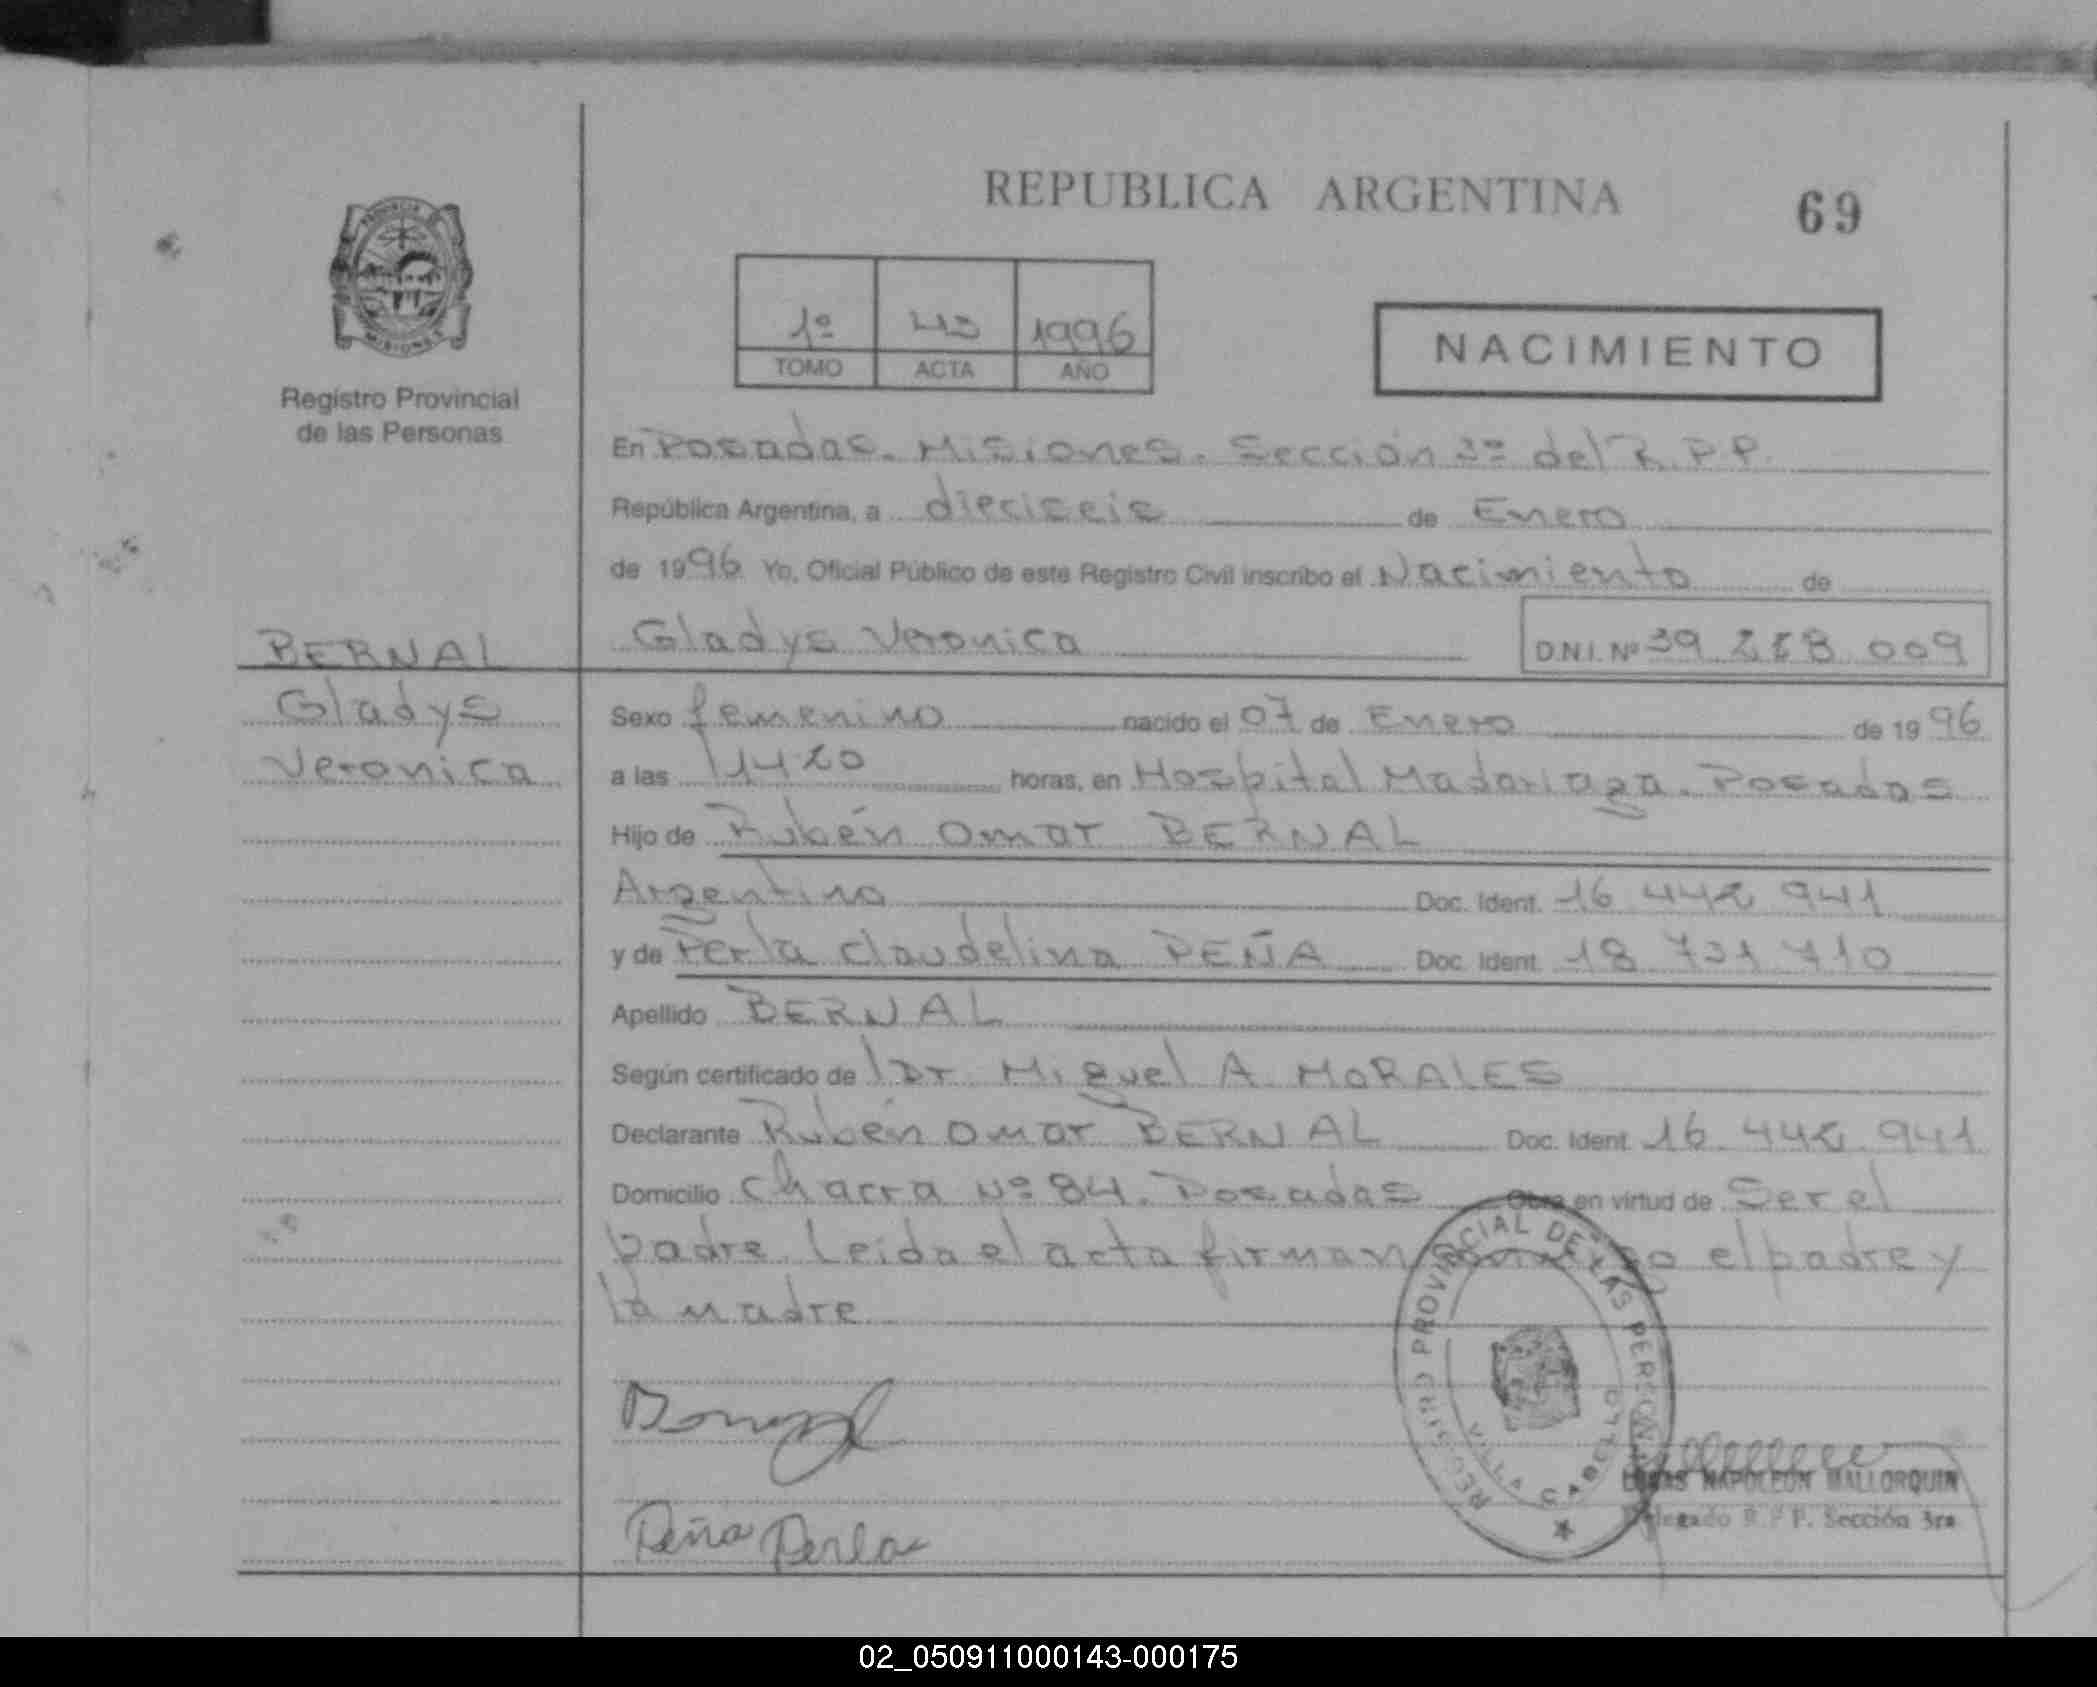 REPUBLICA ARGENTINA
69
PROVINCIA DE
MISIONES
Registro Provincial
de las Personas
1º 1996
TOMO ACTA AÑO
NACIMIENTO
En Posadas. Misiones. Sección 3º del R.P.P.
República Argentina, a dieciseis de Enero
de 1996 Yo, Oficial Público de este Registro Civil inscribo el Nacimiento de
BERNAL
Gladys Veronica
D.N.I. Nº 39 228 009
Gladys
Veronica
Sexo femenino nacido el 07 de Enero de 1996
a las 1420 horas, en Hospital Madariaga. Posadas
Hijo de Rubén Omar BERNAL
Argentino Doc. Ident. 16 442 941
y de Perla Claudelina PEÑA Doc. Ident. 18 731 710
Apellido BERNAL
Según certificado de Dr. Miguel A. MORALES
Declarante Rubén Omar BERNAL Doc. Ident. 16.442.941
Domicilio Chacra Nº 84. Posadas Obra en virtud de Ser el
padre. Leida el acta firman conmigo el padre y
la madre
REGISTRO PROVINCIAL DE LAS PERSONAS
VILLA CABELLO
Peña Perla
LUCAS NAPOLEON MALLORQUIN
Delegado R.P.P. Sección 3ra
02_050911000143-000175